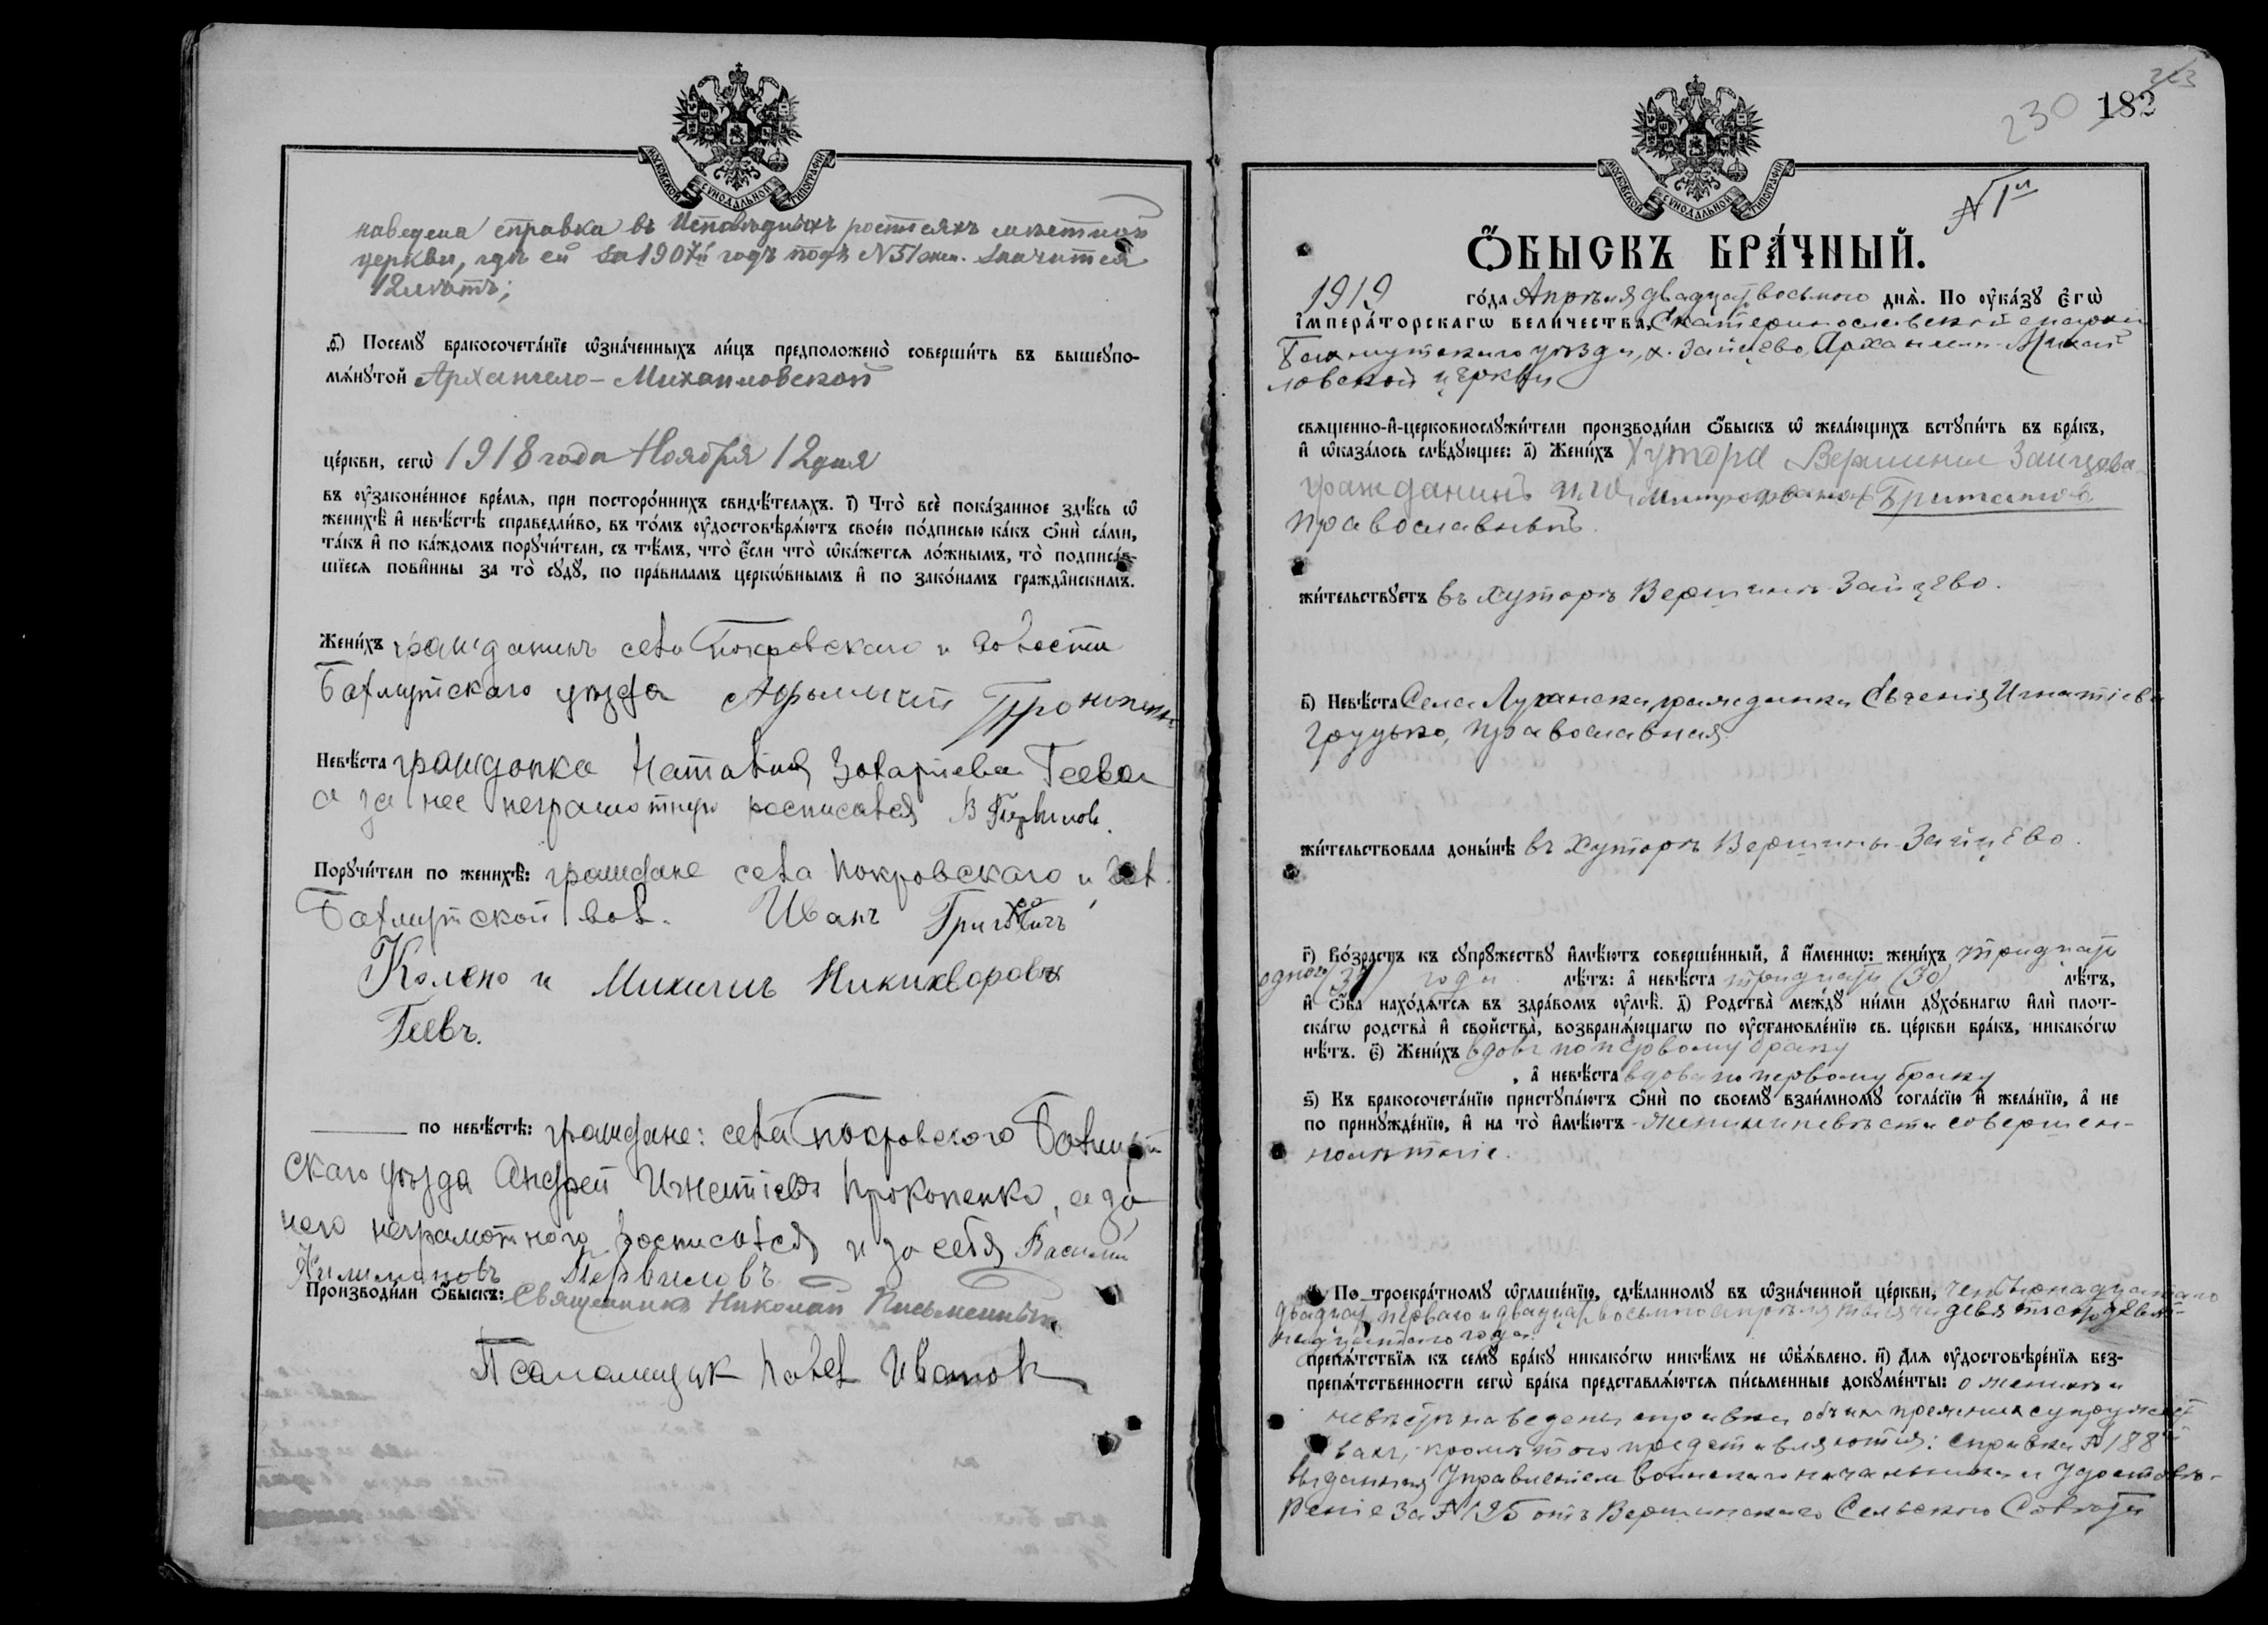 МОСКОВСКОЙ СѴНОДАЛЬНОЙ ТИПОГРАФІИ
наведена справка въ Исповѣдныхъ росписяхъ мѣстной
церкви, гдѣ ей за 1907й годъ подъ N51 жен. значится
12 лѣтъ;
ѳ҃) Посемꙋ̀ бракосочета́нїе ѡ҆зна́ченныхъ ли́цъ предположено̀ соверши́ть въ вышеꙋпо-
мѧ́нꙋтой Архангело-Михаиловской
це́ркви, сегѡ̀ 1918 года Ноября 12 дня
въ ᲂу҆зако́нённое вре́мѧ, при посторо́ннихъ свидѣ́телѧхъ. і҃) Что̀ всѐ пока́занное здѣ́сь ѡ҆
женихѣ̀ и҆ невѣ́стѣ справедли́во, въ то́мъ ᲂу҆достовѣрѧ́ютъ свое́ю по́дписью ка́къ ѻ҆нѝ са́ми,
та́къ и҆ по ка́ждомъ порꙋчи́тели, съ тѣ́мъ, что̀ є҆́сли что̀ ѡ҆ка́жетсѧ ло́жнымъ, то̀ подписа́в-
шїесѧ пови́нны за то̀ сꙋдꙋ̀, по пра́виламъ церко́внымъ и҆ по зако́намъ гражда́нскимъ.
Жени́хъ гражданинъ села Покровскаго и волости
Бахмутскаго уѣзда
Невѣ́ста гражданка Наталия Захариева Геева
а за нее неграмотную росписался В Первилов.
Порꙋчи́тели по женихѣ̀: граждане села Покровскаго и вол.
Бахмутской вол. Иванъ
Колено и Михаилъ Никихворовъ
Геевъ.
по невѣ́стѣ: граждане: села Покровского Бахмут
скаго уѣзда Андрей Игнатіевъ Прокопенко, а за
него неграмотного росписался и за себя Василий
Первиловъ
Производи́ли ѻ҆́быскъ: Священникъ Николай Письменный
Псаломщик Павел Иванов
223
230 182
N 1й
МОСКОВСКОЙ СѴНОДАЛЬНОЙ ТИПОГРАФІИ
Ѻ҆́БЫСКЪ БРА́ЧНЫЙ.
1919 го́да Апрѣля двадцать восьмого днѧ̀. По ᲂу҆ка́зꙋ є҆гѡ̀
і҆мпера́торскагѡ вели́чества, Екатеринославской епархіи
Бахмутскаго уѣзда, х. Зайцево, Архангело-Михай
ловской церкви
свѧще́нно-и҆-церковнослꙋжи́тели производи́ли ѻ҆́быскъ ѡ҆ жела́ющихъ встꙋпи́ть въ бра́къ,
и҆ ѡ҆каза́лось слѣ́дꙋющее: а҃) Жени́хъ Хутора Вершины Зайцева
гражданинъ Митрофановъ
православный.
жи́тельствꙋетъ въ хуторѣ Вершинѣ-Зайцево.
в҃) Невѣ́ста Села Луганска, гражданка Евгенія Игнатіева
Грудько, православная
жи́тельствовала доны́нѣ въ хуторѣ Вершины-Зайцево.
г҃) Во́зрастъ къ сꙋпрꙋ́жествꙋ и҆мѣ́ютъ соверше́нный, а҆ и҆́менно: жени́хъ тридцать
одного (31) года лѣ́тъ: а҆ невѣ́ста тридцать (30) лѣ́тъ,
и҆ ѻ҆́ба нахо́дѧтсѧ въ здра́вомъ ᲂу҆мѣ̀. д҃) Родства̀ ме́ждꙋ ни́ми дꙋхо́внагѡ и҆лѝ плот-
ска́гѡ родства̀ и҆ сво́йства, возбранѧ́ющагѡ по ᲂу҆становле́нїю св. це́ркви бра́къ, никако́гѡ
нѣ́тъ. є҃) Жени́хъ вдовъ по первому браку
, а҆ невѣ́ста вдова по первому браку
ѕ҃) Къ бракосочета́нїю пристꙋпа́ютъ ѻ҆нѝ по своемꙋ̀ взаи́мномꙋ согла́сїю и҆ жела́нїю, а҆ не
по принꙋжде́нїю, и҆ на то̀ и҆мѣ́ютъ жених и невѣста совершен-
нолѣтніе.
По троекра́тномꙋ ѡ҆глаше́нїю, сдѣ́ланномꙋ въ ѡ҆зна́ченной це́ркви,
двадцать перваго и двадцать восьмого апрѣля тысяча девятьсотъ девят-
надцатаго года.
препѧ́тствїѧ къ семꙋ̀ бра́кꙋ никако́гѡ никѣ́мъ не ѡ҆б̾ѧ́влено. и҃) Длѧ ᲂу҆достовѣре́нїѧ без-
препѧ́тственности сегѡ̀ бра́ка представлѧ́ютсѧ пи́сьменные докꙋме́нты: о женихѣ и
невѣстѣ наведены справки
кромѣ того представляются: справка N 188й
выданная Управленіем Воинскаго начальника и Удостовѣ-
реніе за N 195 отъ Вершинскаго Сельского Совѣта